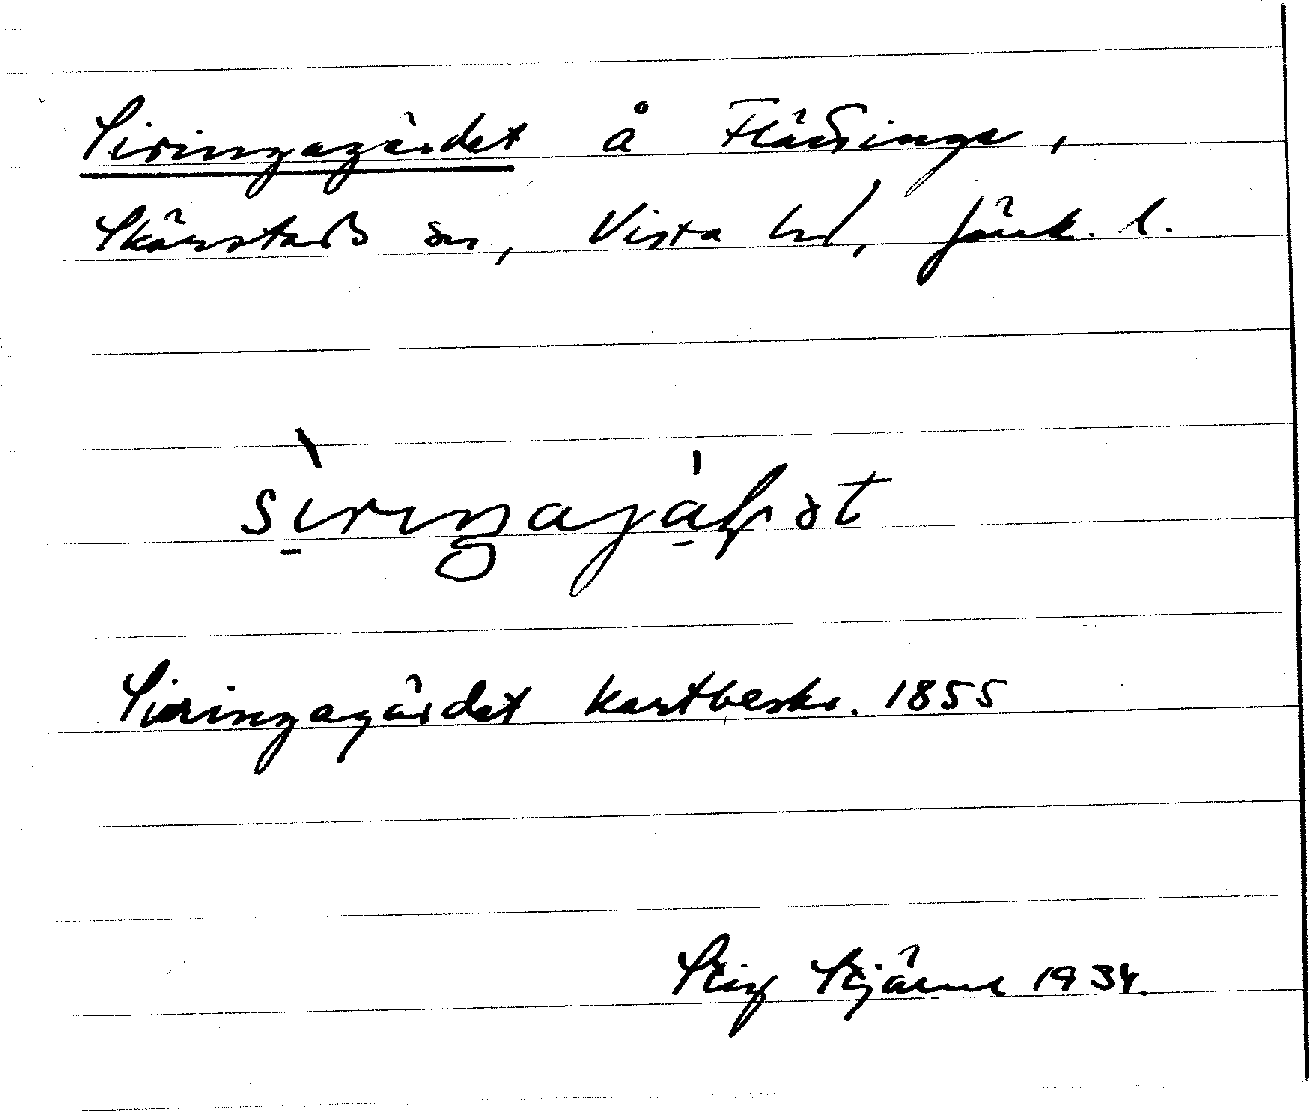 Siringagärdet å Flättinge,
Skärstads sn, Vista hd, Jönk. l.
Siringagärdet kartbeskr. 1855
Stig Stjärne 1934.